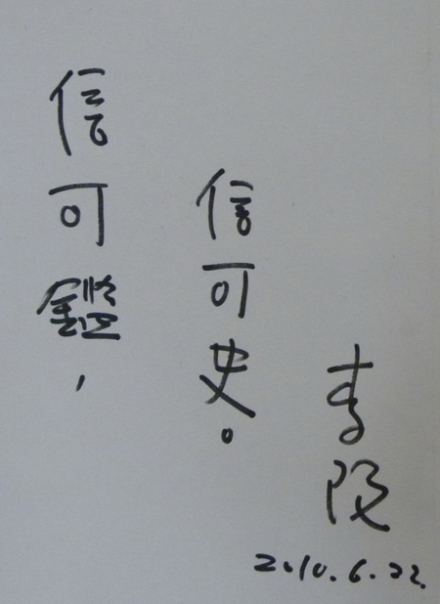 信可鑑，
信可史。
李
2010.6.22.